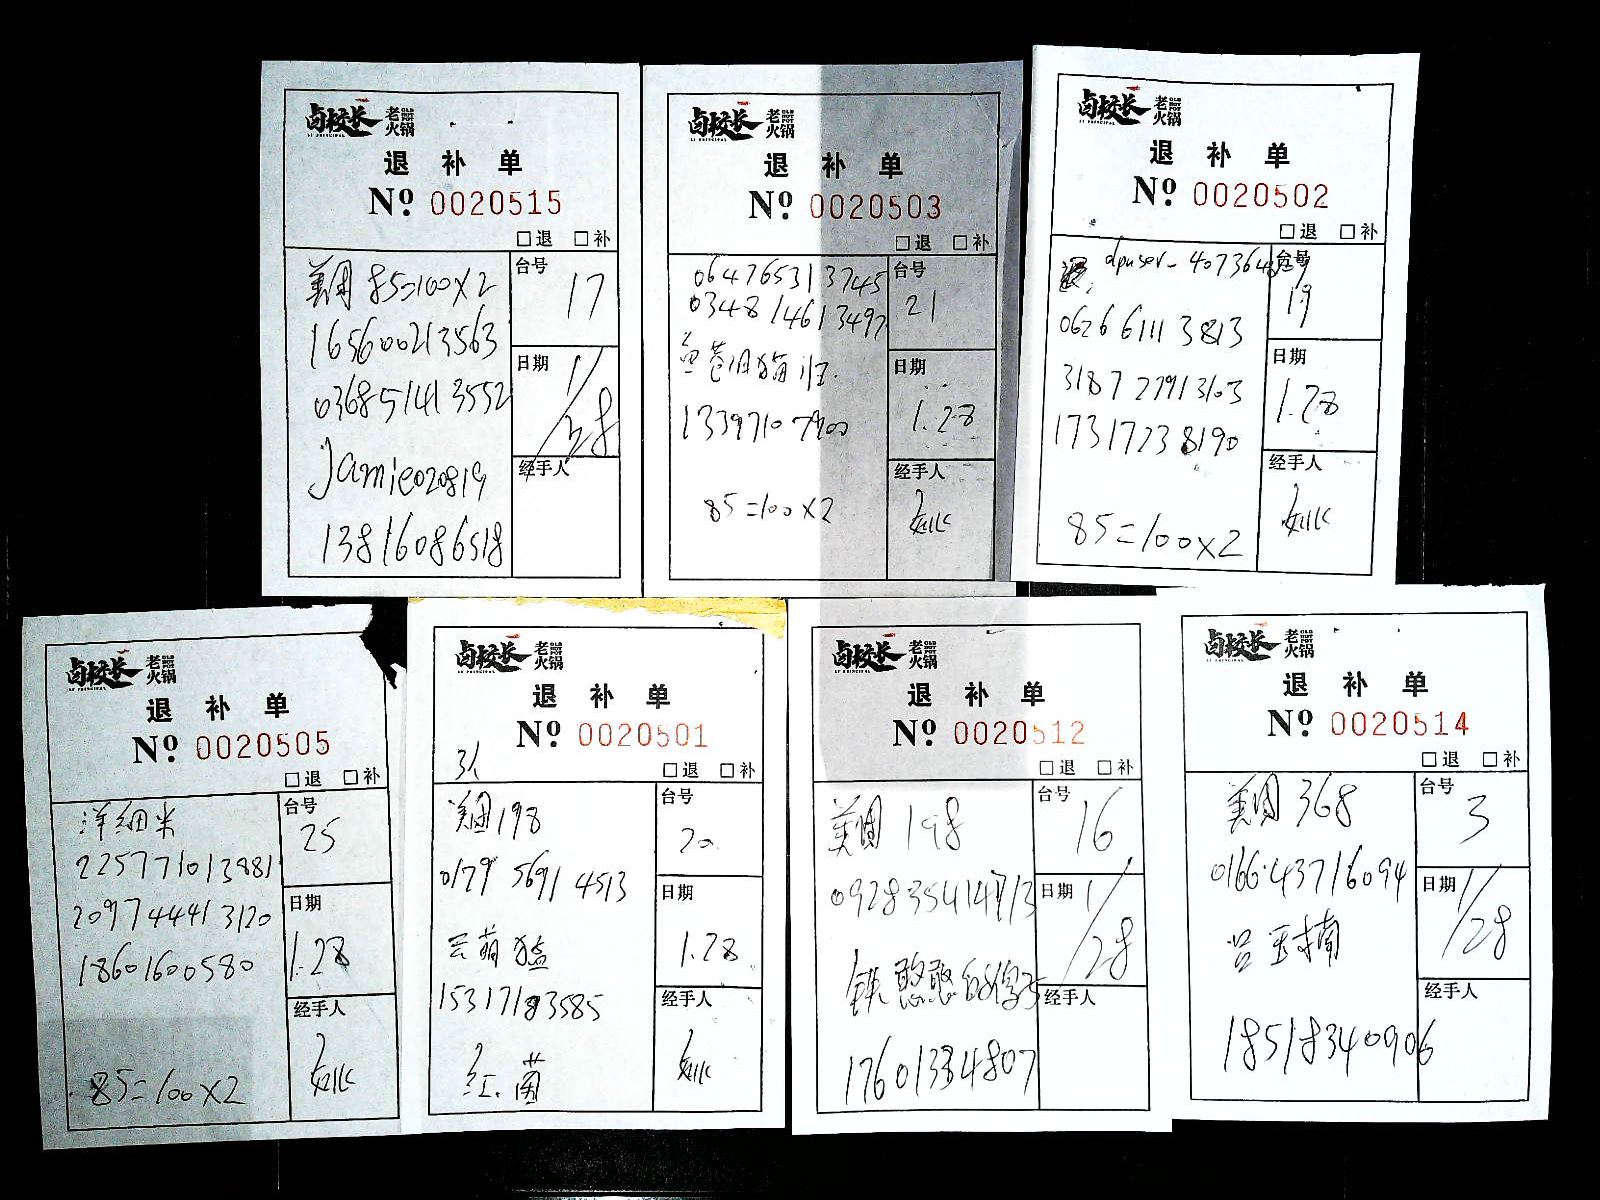 卤校长 老火锅 OLD HOT POT
LI PRINCIPAL
退补单
Nº 0020515
□退 □补
美团 85=100×2
165600213563
036851413552
Jamie020819
13816086518
台号
17
日期
1/28
经手人
卤校长 老火锅 OLD HOT POT
LI PRINCIPAL
退补单
Nº 0020503
□退 □补
064765313745
034814613497
13397107900
85=100×2
台号
21
日期
1.28
经手人
卤校长 老火锅 OLD HOT POT
LI PRINCIPAL
退补单
Nº 0020502
□退 □补
062661113813
318727913103
17317238190
85=100×2
台号
19
日期
1.28
经手人
卤校长 老火锅 OLD HOT POT
LI PRINCIPAL
退补单
Nº 0020505
□退 □补
洋细米
225771013881
209744413120
18601600580
85=100×2
台号
25
日期
1.28
经手人
卤校长 老火锅 OLD HOT POT
LI PRINCIPAL
退补单
Nº 0020501
3人
□退 □补
美团198
0179 5691 4513
云萌猛
15317183585
红.菌
台号
20
日期
1.28
经手人
卤校长 老火锅 OLD HOT POT
LI PRINCIPAL
退补单
Nº 0020512
□退 □补
美团 198
092835414713
铁憨憨的
17601334807
台号
16
日期
1/28
经手人
卤校长 老火锅 OLD HOT POT
LI PRINCIPAL
退补单
Nº 0020514
□退 □补
美团 368
016643716094
吕玉楠
18518340906
台号
3
日期
1/28
经手人